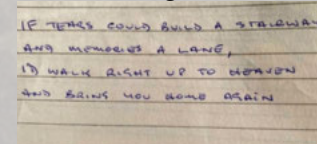 IF TEARS COULD BUILD A STAIRWAY
AND MEMORIES A LANE,
I'D WALK RIGHT UP TO HEAVEN
AND BRING YOU HOME AGAIN